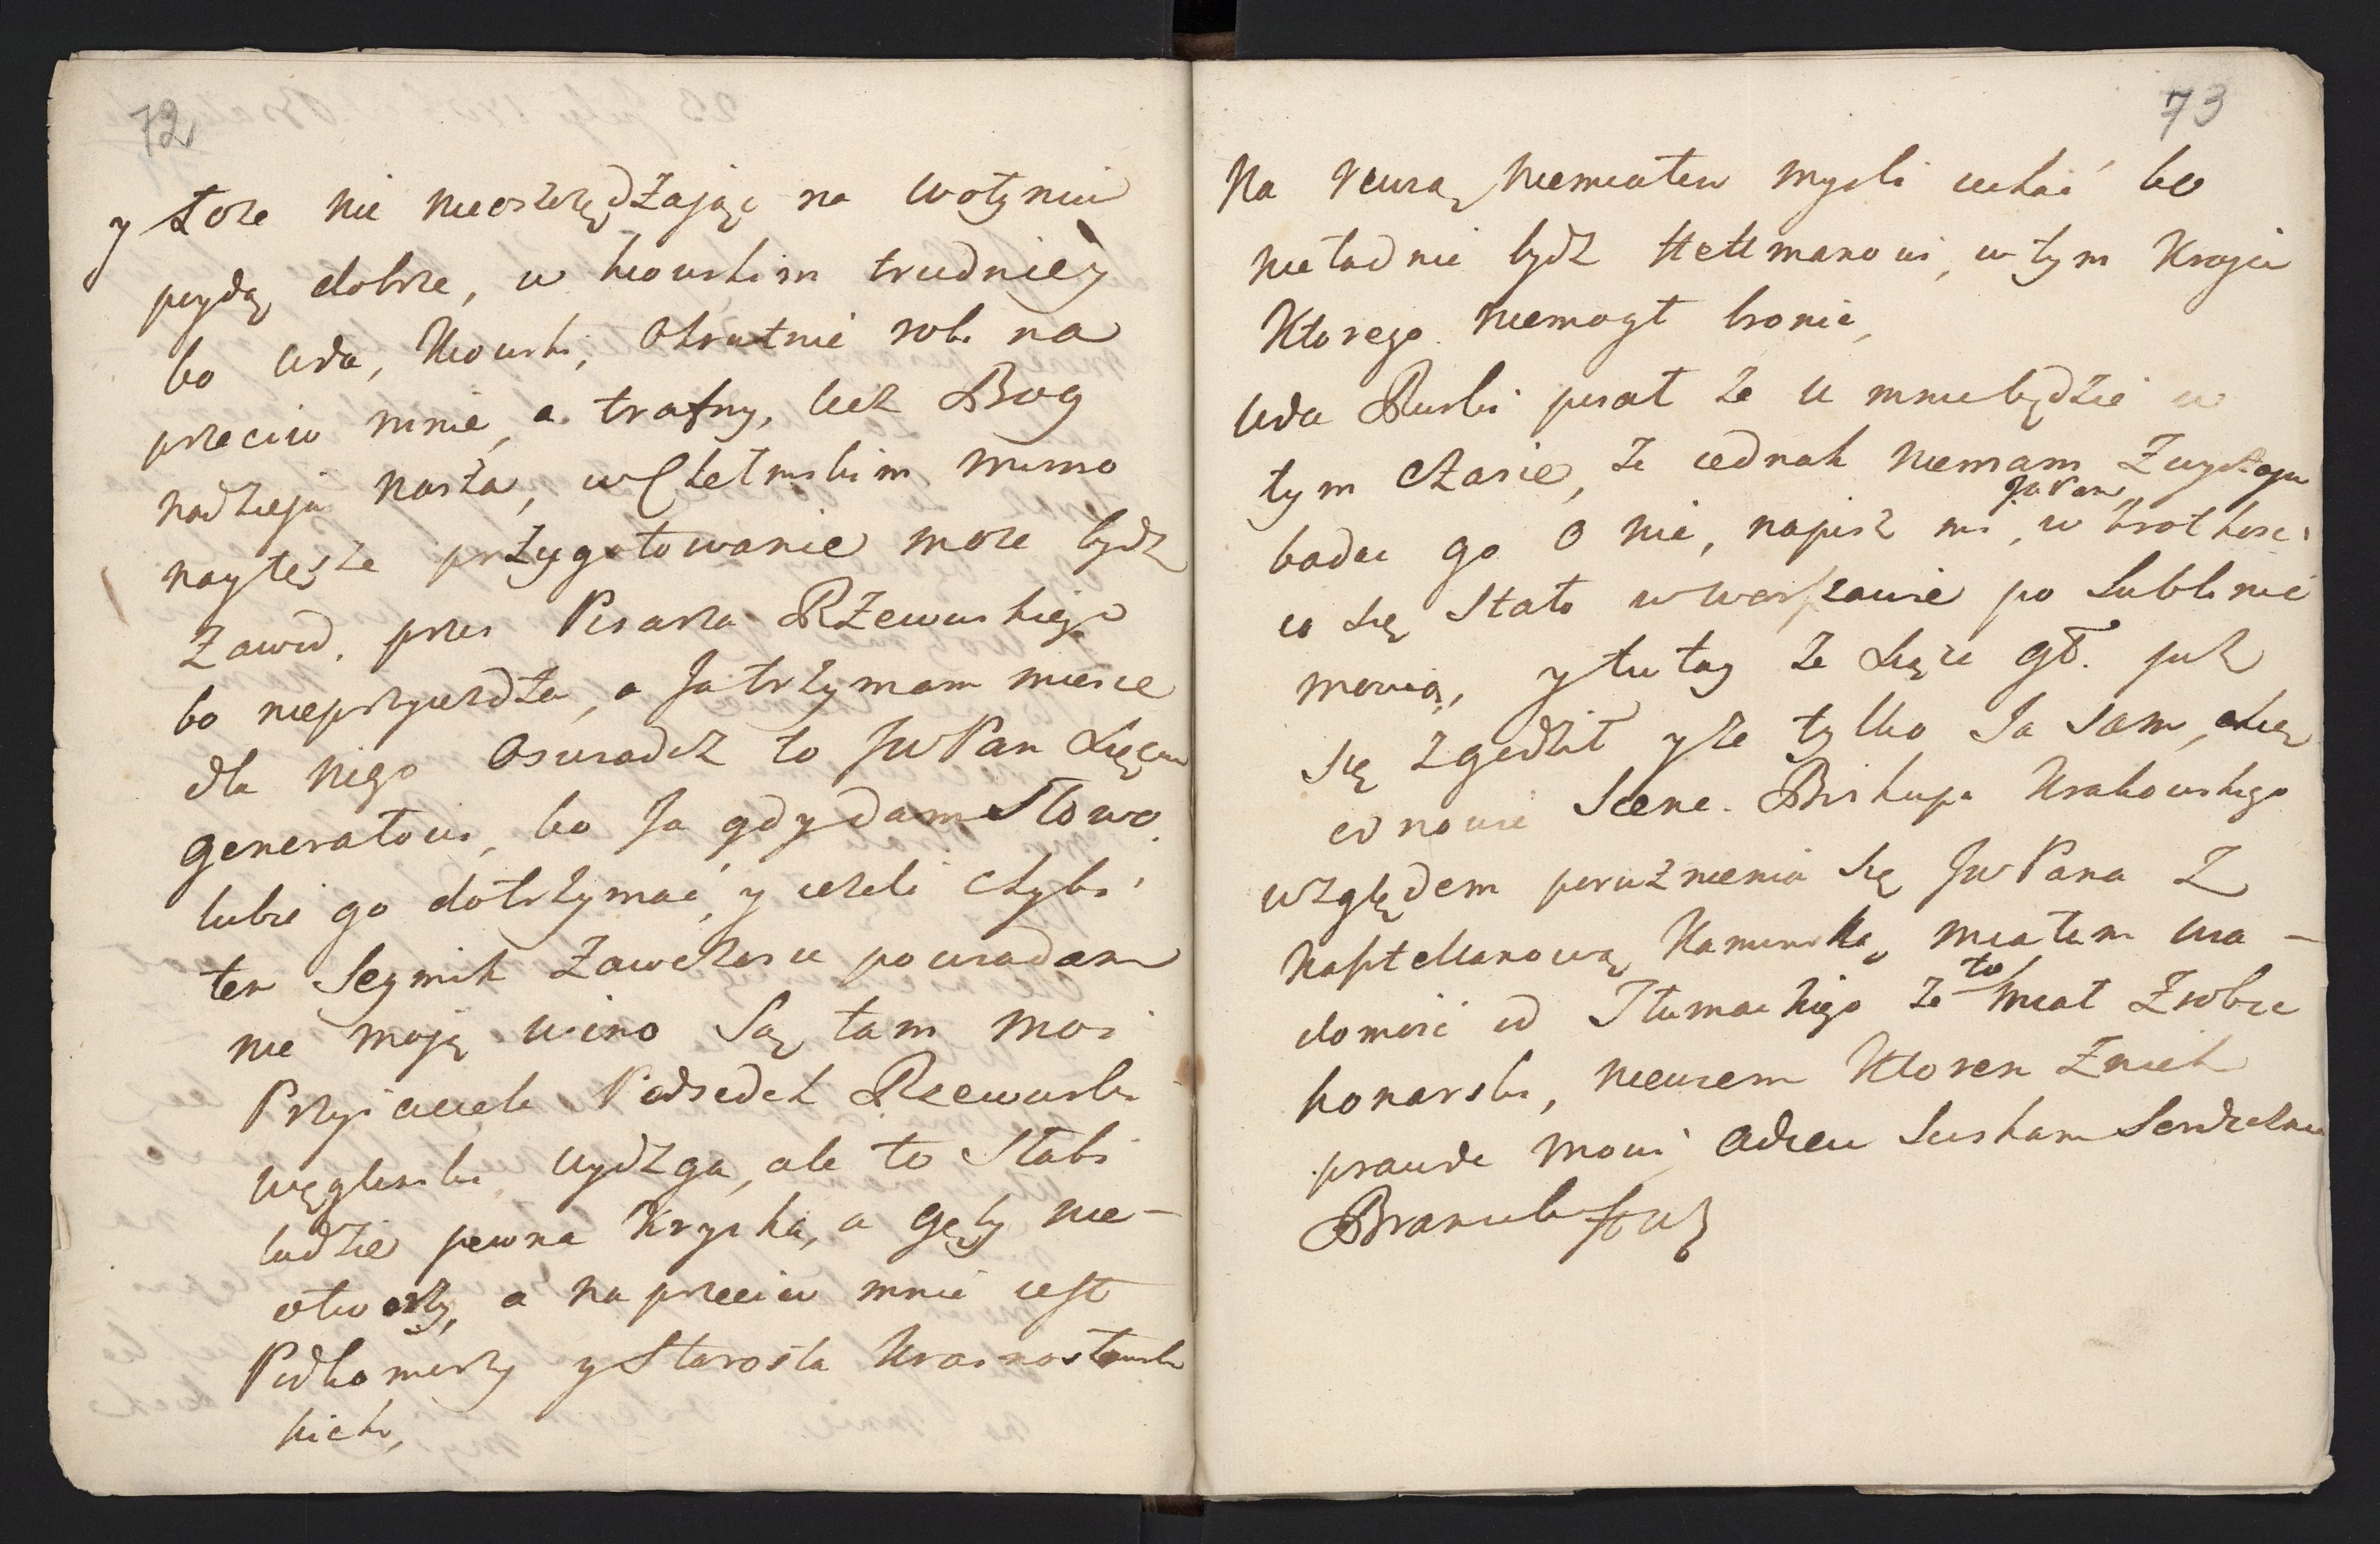 72
y Łoze nie nieoszczędzając na Wołyniu
pojdą dobrze, w kiowskim trudniey
bo Wda, Kiowski, okrutnie robi na
przeciw mnie, a trafny, lecz Bog
nadzieja nasza, w Chełmskim mimo
naytęższe przygotowanie może bydz
Zawod, przez Pisarza Rżewuskiego
bo nieprzyiezdża, a Ja trzymam mieisce
dla niego Oswiadcz to JwPan Xięciu
Generałowi, bo Ja gdy dam Słowo
lubie go dotrzymać, y iezeli chybi
ten Seymik Zawczasu powiadam
nie moją winą Są tam moi
Przyiaciele Podsędek Rzewuski
Węgliński Uydzga, ale to Słabi
ludzie pewna Kryska, a gęby nie-
otworzy, a na przeciw mnie iest
Podkomorzy y Starosta Krasnostawski
kich,
73
Na Ruś niemiałem mysli iechać bo
nieładnie bydz Hettmanowi, w tym Kraju
Ktorego niemogł bronic,
Wda Ruski pisał że u mnie będzie w
tym czasie, że iednak niemam Zwyczaju
JwPan
badać go o nic, napisz mi, w krotkosci
co się Stało w Warszawie po Lublinie
mowią, y tutay że Xiąże gł. już
się zgodził y że tylko Ja Sam, chcę
Scene Biskupa Krakowskiego
względem poruznienia się JwPana Z
Kasztellanową Kaminską, miałem wia-
domość od Tłumackiego że to miał Zrobic
Konarski, niewiem Ktoren Znich
prawde mowi adieu Sciskam Serdecznie
Branicki HWK